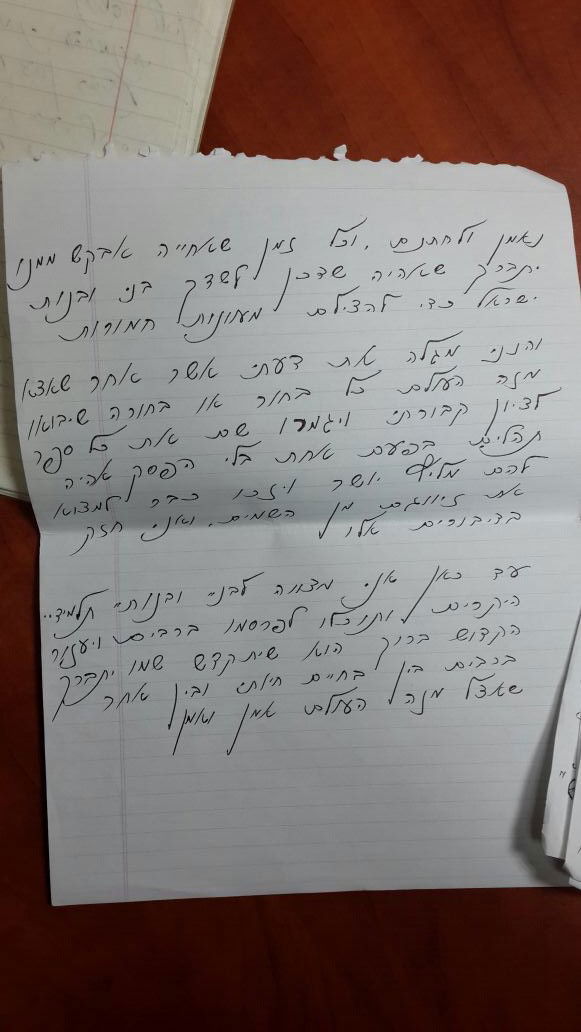 נאמן ולחתנם. וכל זמן שאחייה אבקש ממנו
יתברך שאהיה שדכן לשדך בני ובנות
ישראל כדי להצילם מעוונות חמורות
והנני מגלה את דעתי אשר אחר שאצא
מזה העולם כל בחור או בחורה שיבואו
לציון קבורתי ויגמרו שם את כל ספר
תהלים בפעם אחת בלי הפסק אהיה
להם מליץ יושר ויזכו כבר למצוא
את זיווגם מן השמים. ואני חזק
בדיבורים אלו
עד כאן אני מצווה לבניי ובנותיי תלמידיי
היקרים ותוכלו לפרסמו ברבים ויעזור
הקדוש ברוך הוא שיתקדש שמו יתברך
ברבים בין בחיים חיותי ובין אחר
שאצא מזה העולם אמן ואמן